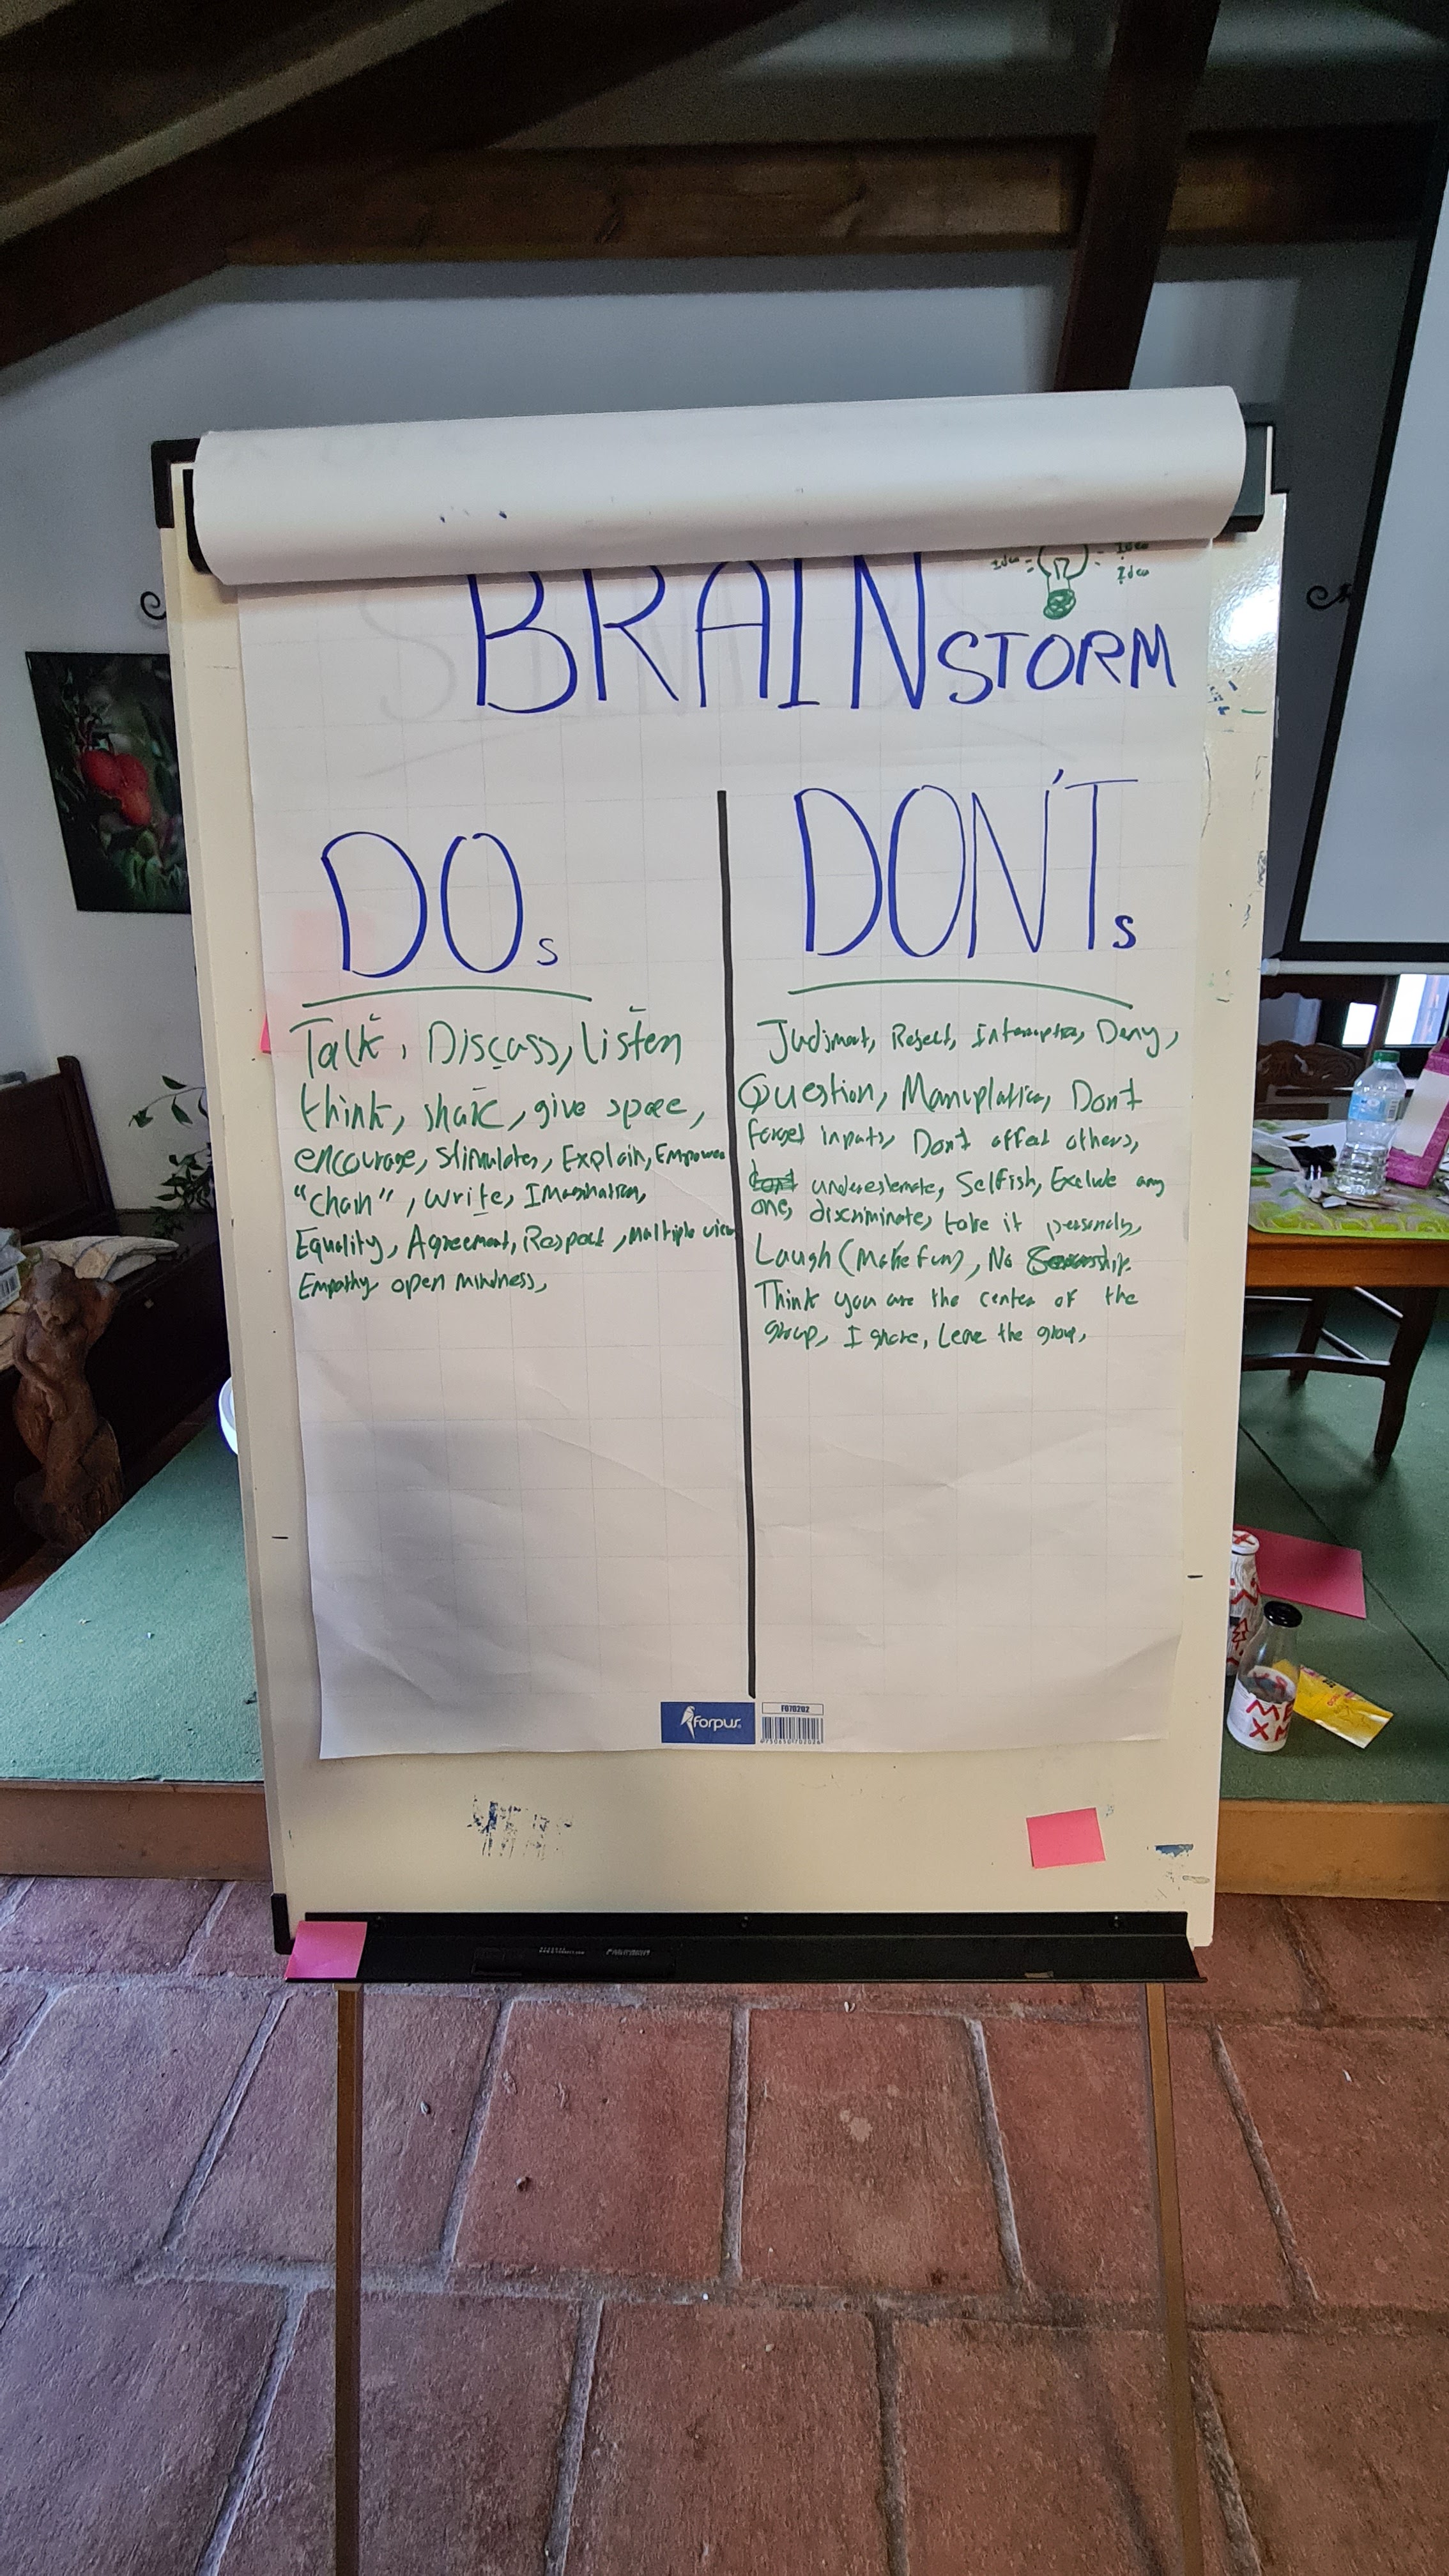 Idea
Idea
Idea
BRAINSTORM
DOs
Talk, Discuss, Listen
think, share, give space,
encourage, Stimulates, Explain, Empower
"Chain", write, Imagination,
Equality, Agreement, Respect, multiple view
Empathy open mindness,
DON'Ts
Judjment, Reject, Interruption, Deny,
Question, Manuplation, Don't
forget inputs, Don't affect others,
underestemate, Selfish, Exclude any
one, discriminate, take it personaly,
Laugh (make fun), No
Think you are the center of the
group, Ignore, Leave the group,
forpus
F070202
ME
XM